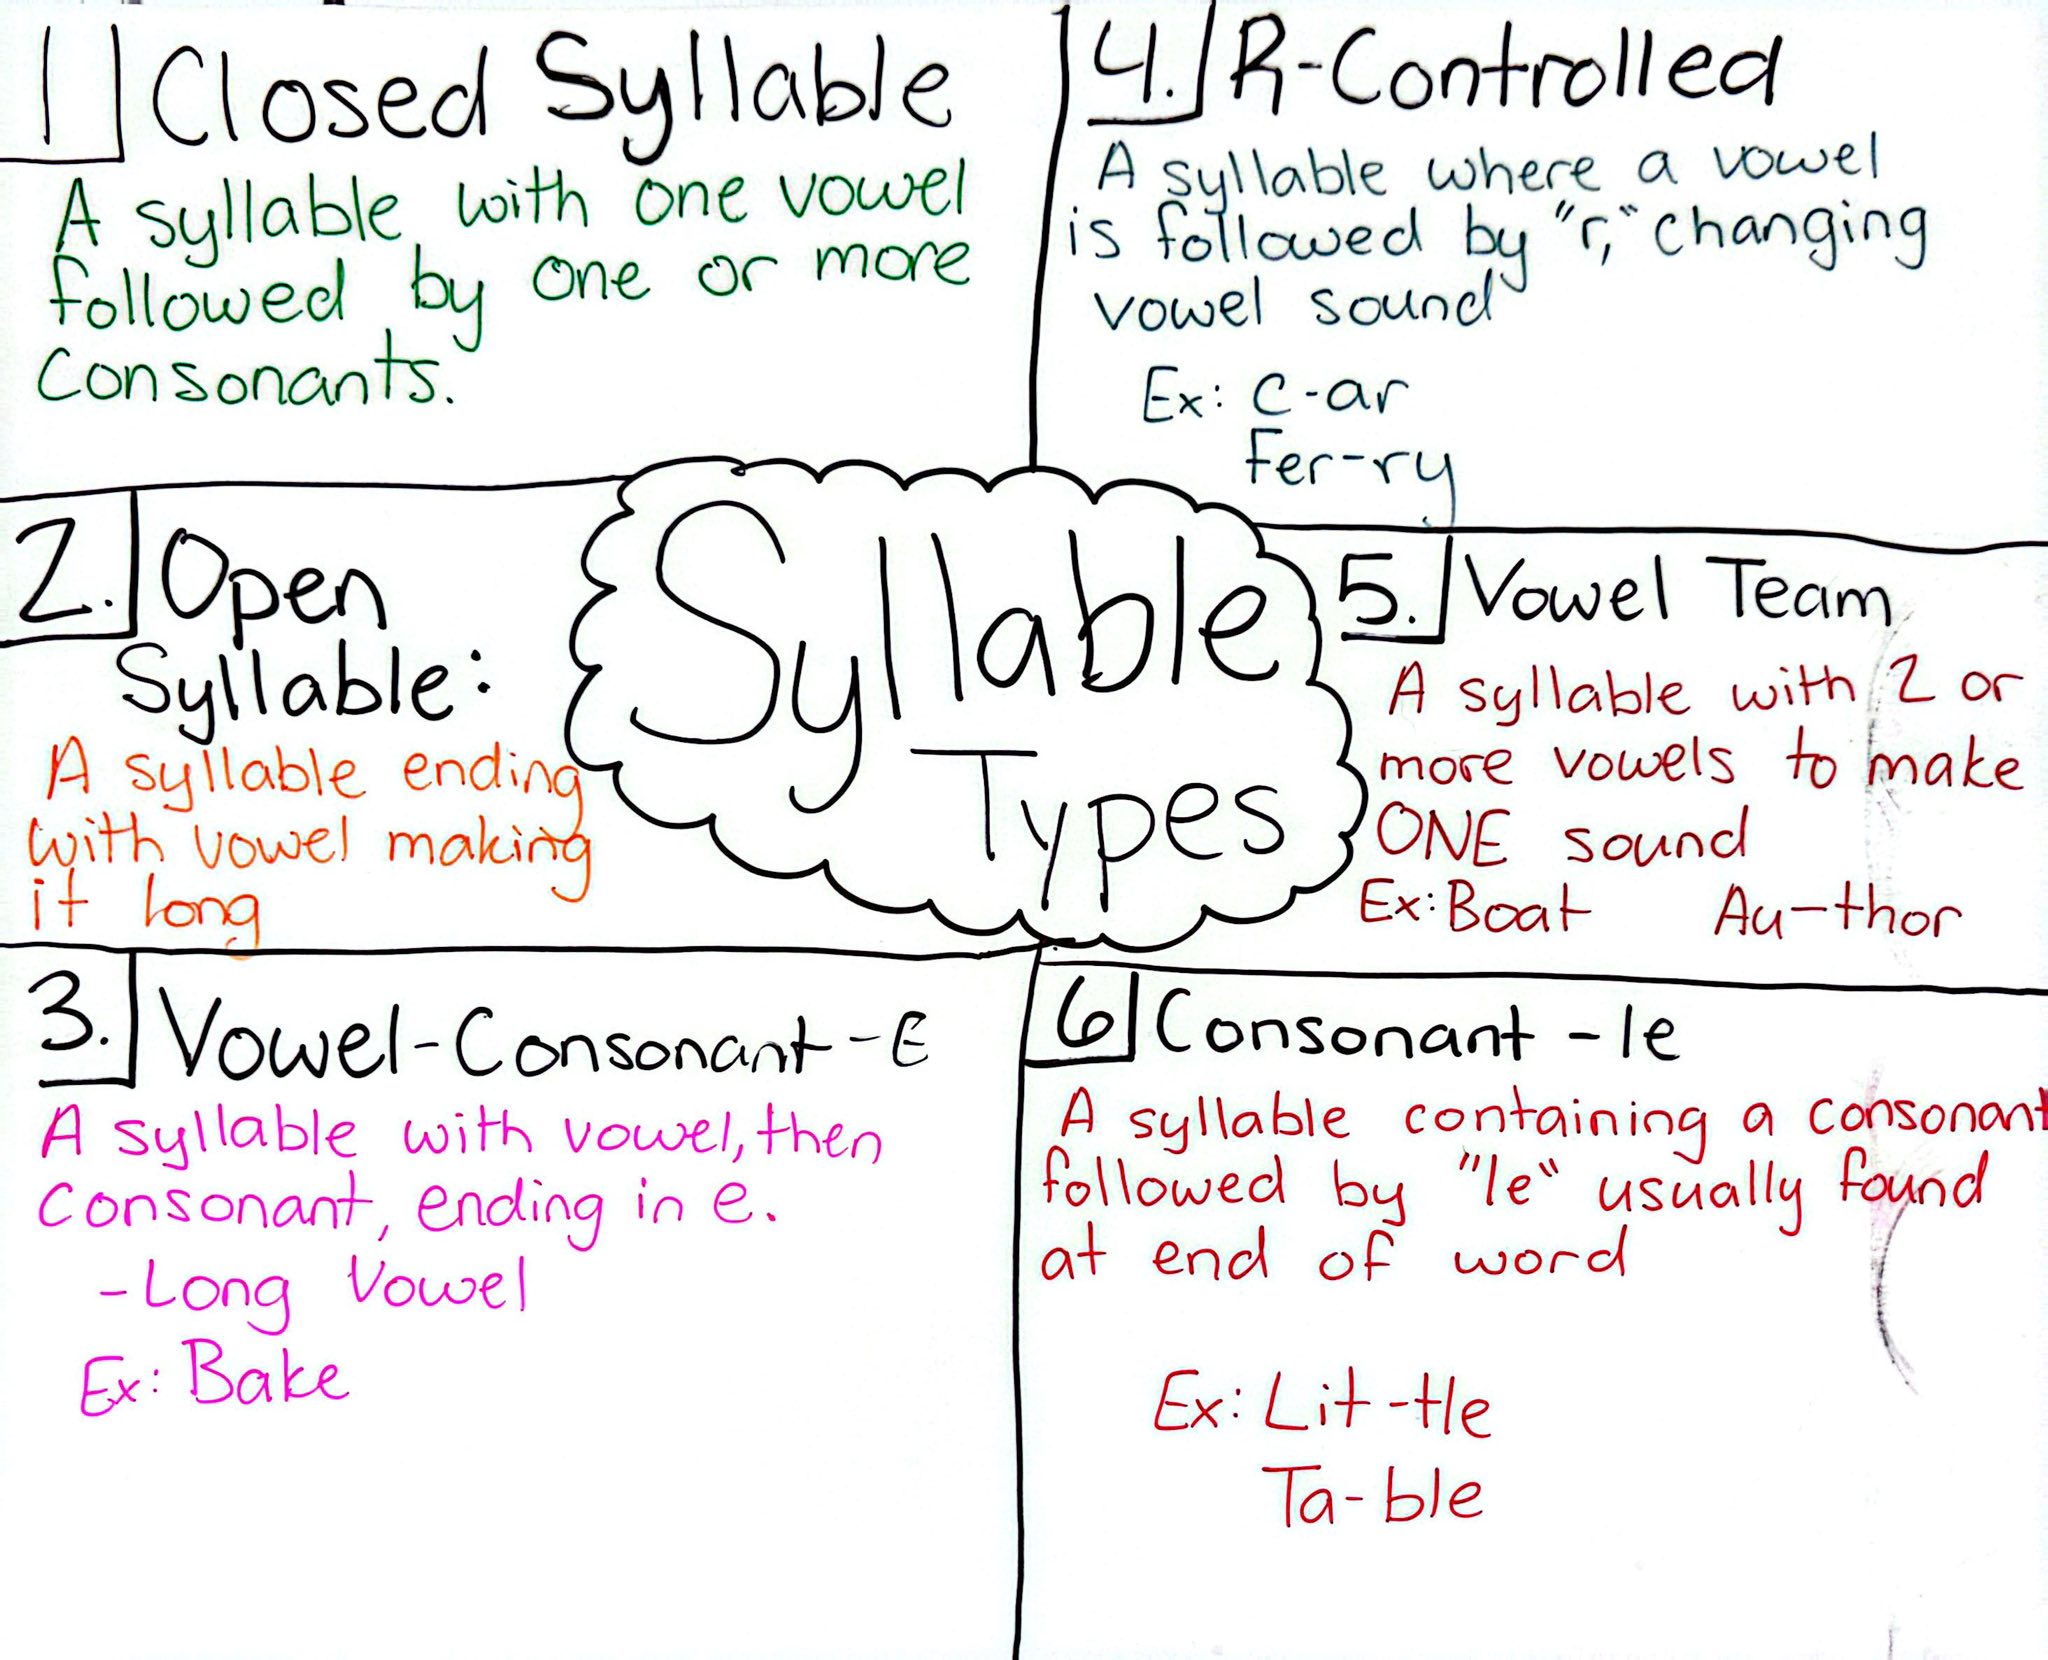 1 Closed Syllable
A syllable with one vowel
followed by one or more
Consonants.
2. Open
Syllable:
A syllable ending
with vowel making
it long
3. Vowel-Consonant-E
A syllable with vowel, then
Consonant, ending in e.
-Long Vowel
Ex: Bake
Syllable
Types
4. R-Controlled
A syllable where a vowel
is followed by "r," changing
vowel sound
Ex: C-ar
Fer-ry
5. Vowel Team
A syllable with 2 or
more vowels to make
ONE sound
Ex: Boat Au-thor
6 Consonant -le
A syllable containing a consonant
followed by "le" usually found
at end of word
Ex: Lit-tle
Ta-ble